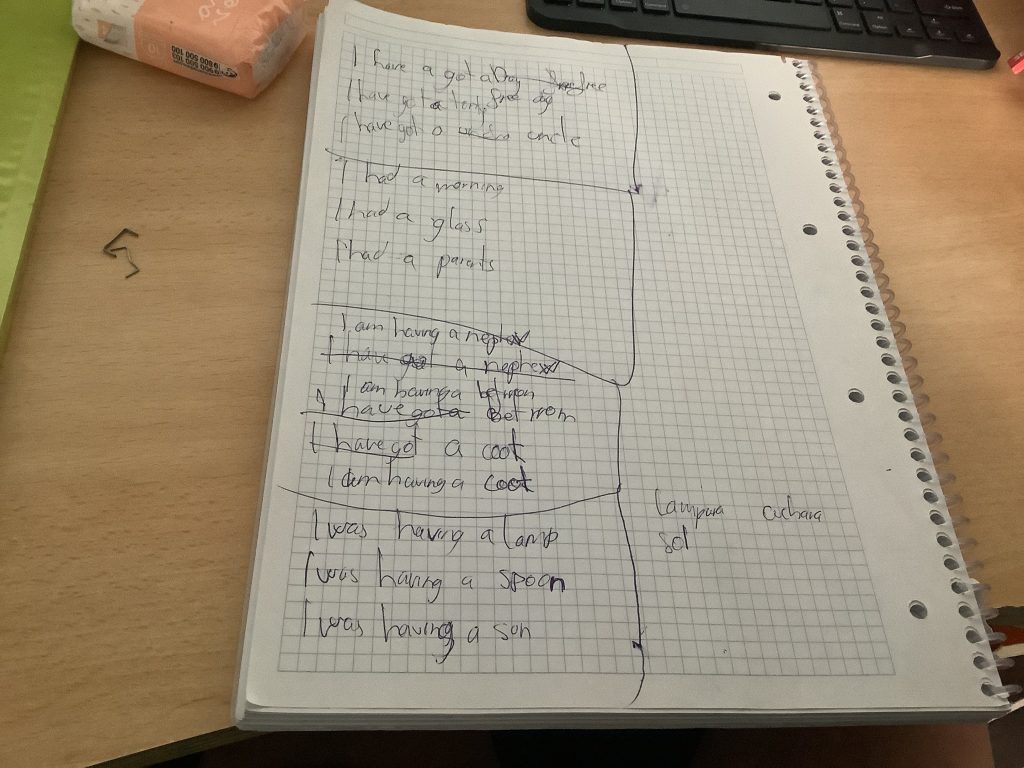 I have a got a free
I have got a free day
I have got a uncle
I had a morning
I had a glass
I had a parents
I am having a nephew
I have got a nephew
I am having a betroom
I have got a betroom
I have got a coot
I am having a coot
I was having a lamp
I was having a spoon
I was having a son
lampara cuchara
sol